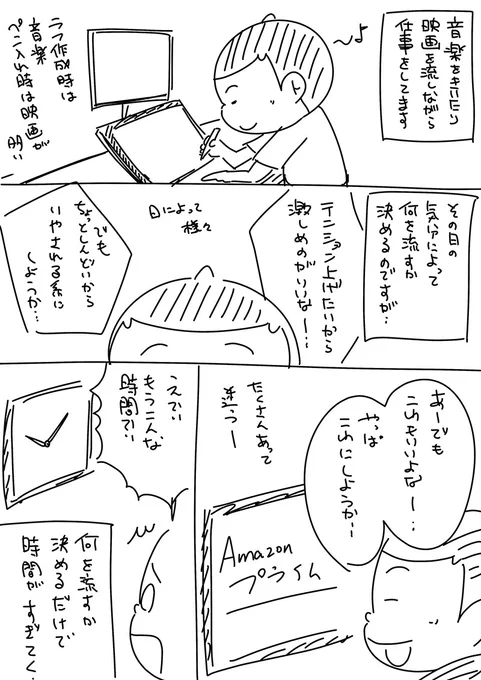 音楽をきいたり
映画を流しながら
仕事をしてます
ラフ作成時は
音楽
ペン入れ時は映画が
多い
その日の
気分によって
何を流すか
決めるのですが…
テンション上げたいから
激しめのがいいなー…
日によって
様々
でも
ちょっとしんどいから
いやされる系に
しようか…
あーでも
これもいいよなー…
やっぱ
これにしようか…
たくさんあって
迷うー
Amazon
プライム
えっ!!
もうこんな
時間!?
何を流すか
決めるだけで
時間がすぎてく